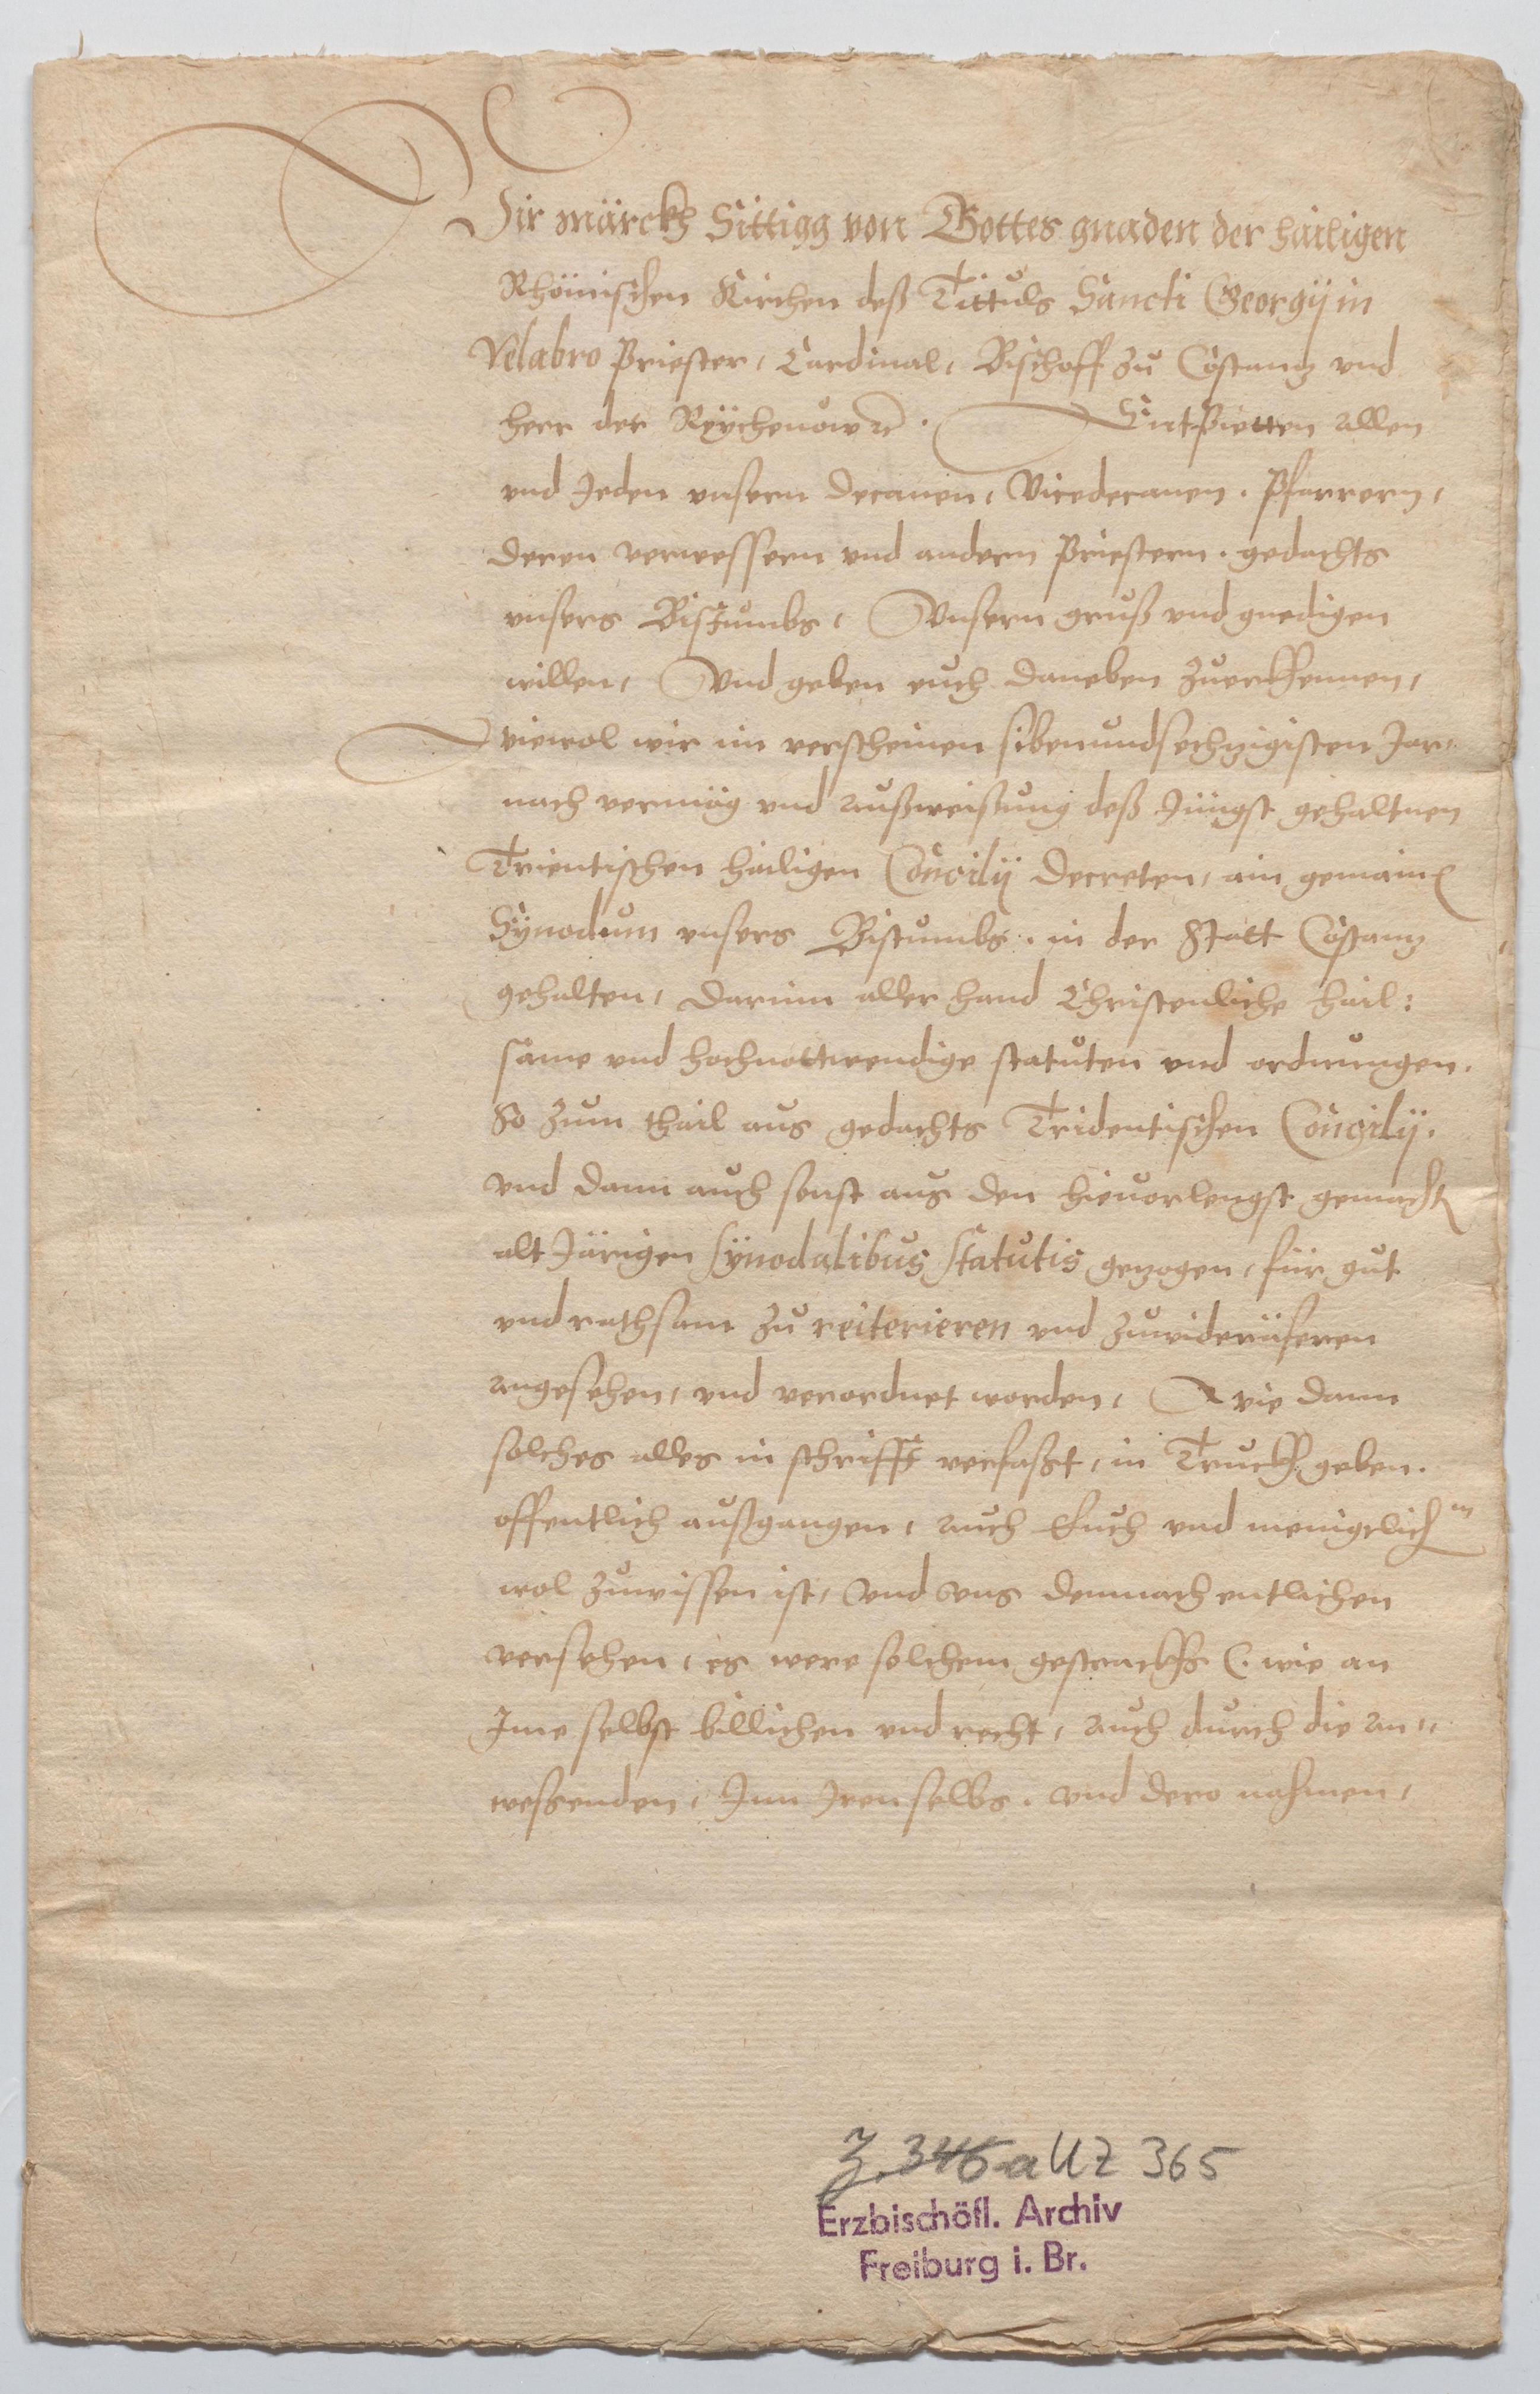 Wir märckh Sittigg von Gottes gnaden der hailigen
Rhömischen Kirchen deß Tittuls Sancti Georgÿ in
Velabro Priester, Cardinal, Bischoff zu Costantz und
herr der Reÿchenow ꝛc. Entbietten allen
und Jeden unsern Decanen, Vicedecanen, Pfarrern,
deren verwessern und andern Priestern, gedachts
unsers Bistumbs, Unsern gruß und gnedigen
willen, Und geben euch daneben zuerkhennen,
Wiewol wir im verscheinen sibenundsechzigisten Jar,
nach vermög und außweisung deß Jüngst gehaltnen
Trientischen hailigen Concilÿ Decreten, ain gemain
Sÿnodum unsers Bistumbs, in der Statt Costantz
gehalten, darinn aller hand Christenliche hail:
same und hochnottwendige statuten und ordnungen.
So zum thail aus gedachts Tridentischen Concilÿ.
und dann auch sonst aus den hievorlengst gemacht
alt Järigen sÿnodalibus statutis gezogen, für gut
und rathsam zu reiterieren und zuwideräferen
angesehen, und verordnet worden, Wie dann
solches alles in schrifft verfaßt, in Truckh geben.
offentlich außgangen, auch Euch und menigelichm
wol zuwissen ist, Und uns demnach entlichen
versehen, es were solchem gestrackhs (. wie an
Ime selbst billichen und recht, auch durch die an,,
weßenden, Inn Iren selbs. und dero nahmen,
Z. 346 a UZ 365
Erzbischöfl. Archiv
Freiburg i. Br.